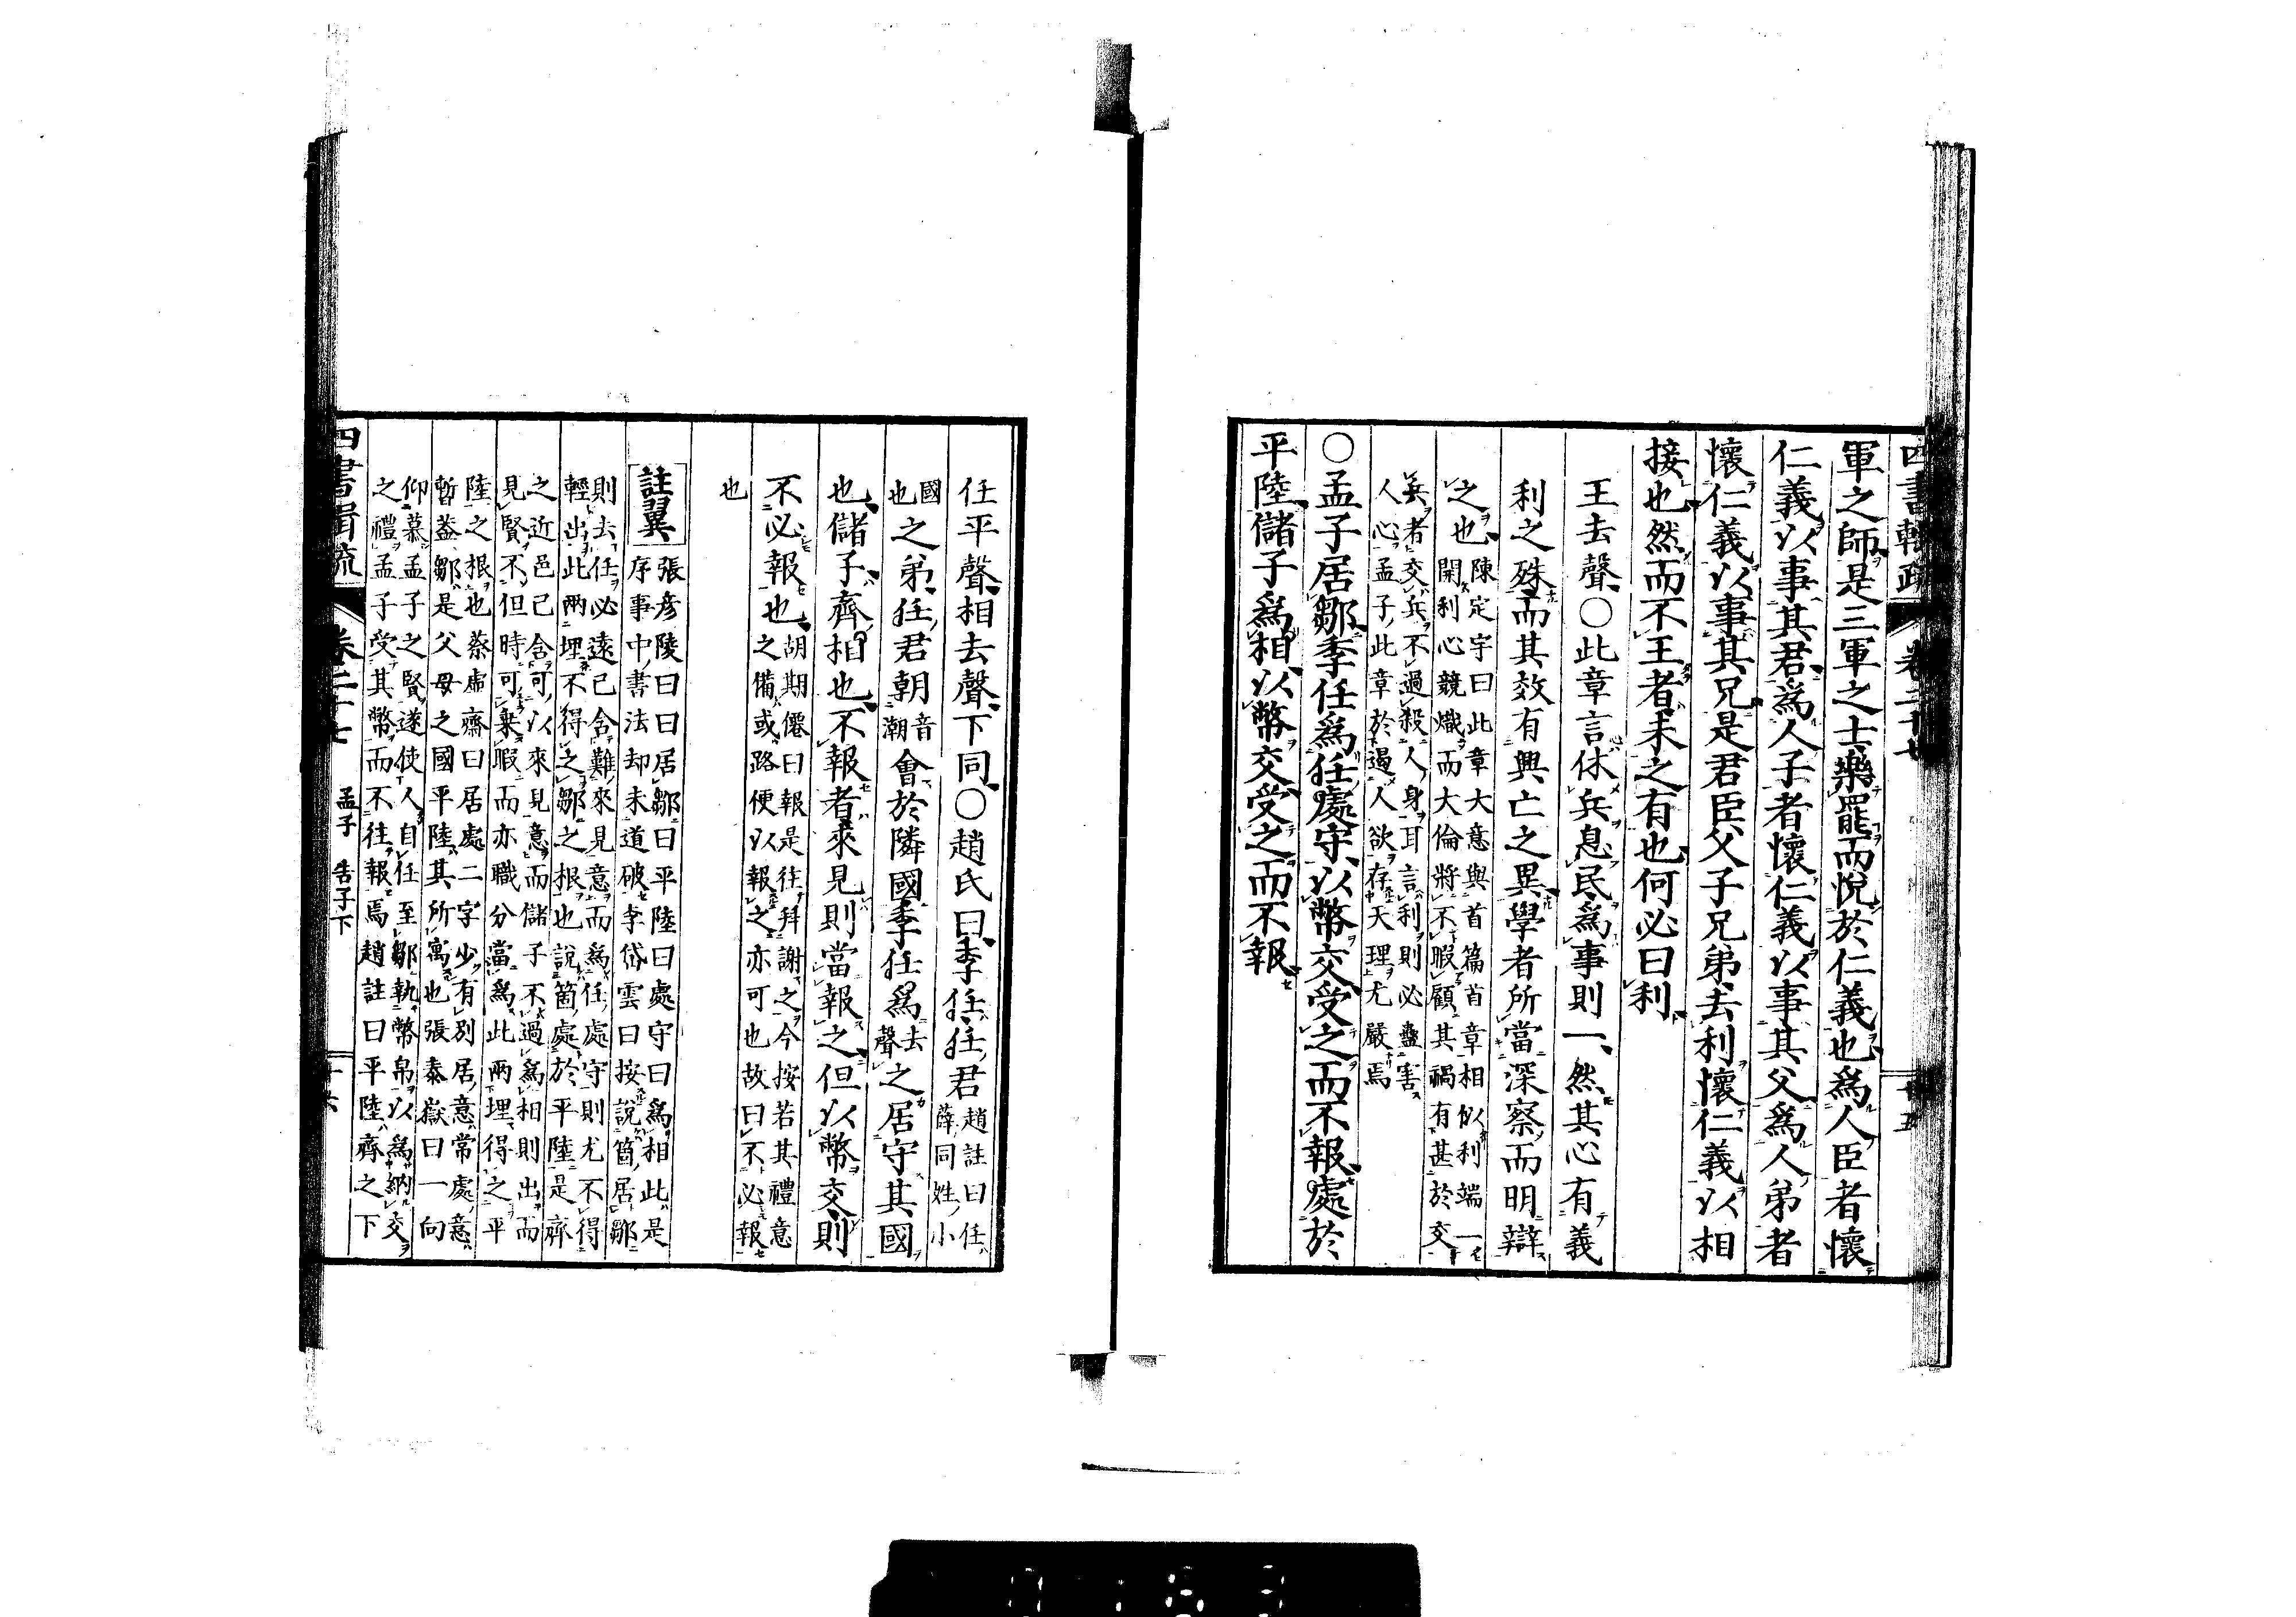 四書輯疏 卷二十七 廿五
軍之師是三軍之士樂罷而悅於仁義也爲人臣者懷
仁義以事其君爲人子者懷仁義以事其父爲人弟者
懷仁義以事其兄是君臣父子兄弟去利懷仁義以相
接也然而不王者未之有也何必曰利
王去聲○此章言休兵息民爲事則一然其心有義
利之殊而其效有興亡之異學者所當深察而明辯
之也陳定宇曰此章大意與首篇首章相似利端一
開利心競熾而大倫將不暇顧其禍有甚於交
兵者交兵不過殺人身耳言利則必蠱害
人心孟子此章於遏人欲存天理尤嚴焉
○孟子居鄒季任爲任處守以幣交受之而不報處於
平陸儲子爲相以幣交受之而不報
任平聲相去聲下同○趙氏曰季任任君趙註曰任
薛同姓小
國
也之弟任君朝音
潮會於隣國季任爲去
聲之居守其國
也儲子齊相也不報者來見則當報之但以幣交則
不必報也胡期僊曰報是往拜謝之今按若其禮意
之備或路便以報之亦可也故曰不必報
也
註翼 張彥陵曰曰居鄒曰平陸曰處守曰爲相此是
序事中書法却未道破李岱雲曰按說箇居鄒
則去任必遠已含難來見意而爲任處守則尤不得
輕出此兩埋不得之鄒之根也說箇處於平陸是齊
之近邑已含可以來見意而儲子不過爲相則出而
見賢不但時可乘暇而亦職分當爲此兩埋得之平
陸之根也蔡虛齋曰居處二字少有別居意常處意
暫蓋鄒是父母之國平陸其所寓也張泰嶽曰一向
仰慕孟子之賢遂使人自任至鄒執幣帛以爲納交
之禮孟子受其幣而不往報焉趙註曰平陸齊之下
四書輯疏 卷二十七 孟子 告子下 廿六